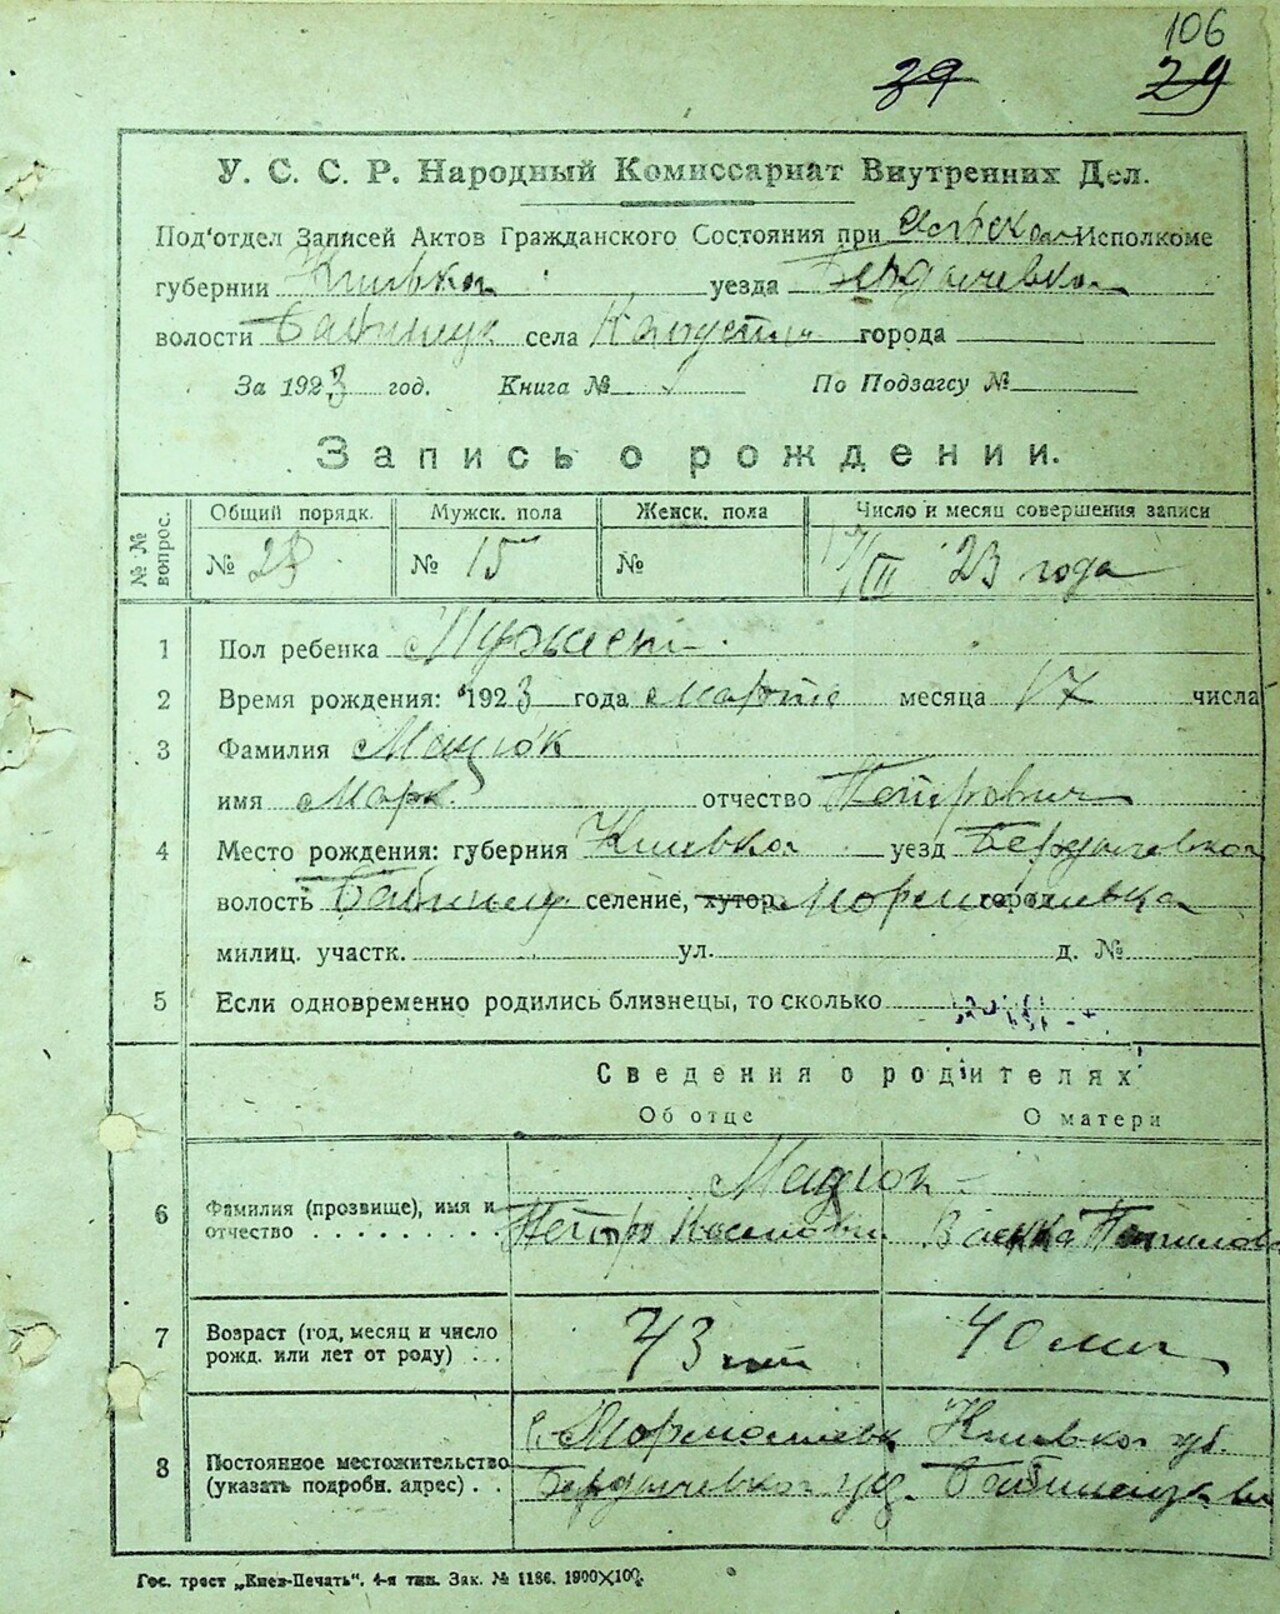 106
39 29
У. С. С. Р. Народный Комиссариат Внутренних Дел.
Под'отдел Записей Актов Гражданского Состояния при Исполкоме
губернии Киевкая уезда Бердычевкая
волости села города
За 1923 год. Книга № По Подзагсу №
Запись о рождении.
№ № вопрос. Общий порядк. Мужск. пола Женск. пола Число и месяц совершения записи
№ 28 № 15 № 23 года
1 Пол ребенка
2 Время рождения: 1923 года марта месяца 17 числа
3 Фамилия Мацюк
имя Марк отчество Петрович
4 Место рождения: губерния Киевкая уезд Бердычевкая
волость селение, хутор, город
милиц. участк. ул. д. №
5 Если одновременно родились близнецы, то сколько
Сведения о родителях
Об отце О матери
Мацюк
6 Фамилия (прозвище), имя и
отчество Петро
7 Возраст (год, месяц и число
рожд. или лет от роду) 43 40
8 Постоянное местожительство
(указать подробн. адрес) с. Киевкая губ.
Бердычевкая
Гос. трест „Киев-Печать“. 4-я тип. Зак. № 1186. 1900×100.